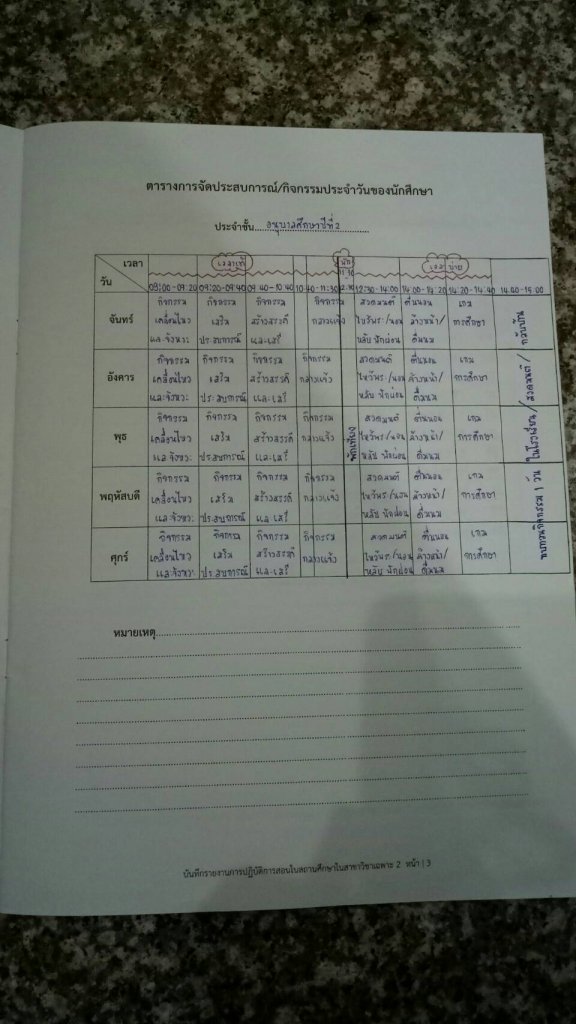 ตารางการจัดประสบการณ์/กิจกรรมประจำวันของนักศึกษา
ประจำชั้น...อนุบาลศึกษาปีที่ 2...
เวลา
วัน
เวลาเช้า
พัก
เวลาบ่าย
09:00-09:20 09:20-09:40 09:40-10:40 10:40-11:30 12:30-14:00 14:00-14:20 14:20-14:40 14:40-15:00
จันทร์ กิจกรรม กิจกรรม กิจกรรม กิจกรรม สวดมนต์ ตื่นนอน เกม
เคลื่อนไหว เสริม สร้างสรรค์ กลางแจ้ง ไหว้พระ/นอน ล้างหน้า/ การศึกษา
และจังหวะ ประสบการณ์ และเสรี หลับ พักผ่อน ดื่มนม
อังคาร กิจกรรม กิจกรรม กิจกรรม กิจกรรม สวดมนต์ ตื่นนอน เกม
เคลื่อนไหว เสริม สร้างสรรค์ กลางแจ้ง ไหว้พระ/นอน ล้างหน้า/ การศึกษา
และจังหวะ ประสบการณ์ และเสรี หลับ พักผ่อน ดื่มนม
พุธ กิจกรรม กิจกรรม กิจกรรม กิจกรรม สวดมนต์ ตื่นนอน เกม
เคลื่อนไหว เสริม สร้างสรรค์ กลางแจ้ง ไหว้พระ/นอน ล้างหน้า/ การศึกษา
และจังหวะ ประสบการณ์ และเสรี หลับ พักผ่อน ดื่มนม
พฤหัสบดี กิจกรรม กิจกรรม กิจกรรม กิจกรรม สวดมนต์ ตื่นนอน เกม
เคลื่อนไหว เสริม สร้างสรรค์ กลางแจ้ง ไหว้พระ/นอน ล้างหน้า/ การศึกษา
และจังหวะ ประสบการณ์ และเสรี หลับ พักผ่อน ดื่มนม
ศุกร์ กิจกรรม กิจกรรม กิจกรรม กิจกรรม สวดมนต์ ตื่นนอน เกม
เคลื่อนไหว เสริม สร้างสรรค์ กลางแจ้ง ไหว้พระ/นอน ล้างหน้า/ การศึกษา
และจังหวะ ประสบการณ์ และเสรี หลับ พักผ่อน ดื่มนม
พักเที่ยง
ทบทวนกิจกรรม 1 วัน ในโรงเรียน/สวดมนต์/กลับบ้าน
หมายเหตุ
บันทึกรายงานการปฏิบัติการสอนในสถานศึกษาในสาขาวิชาเฉพาะ 2 หน้า | 3